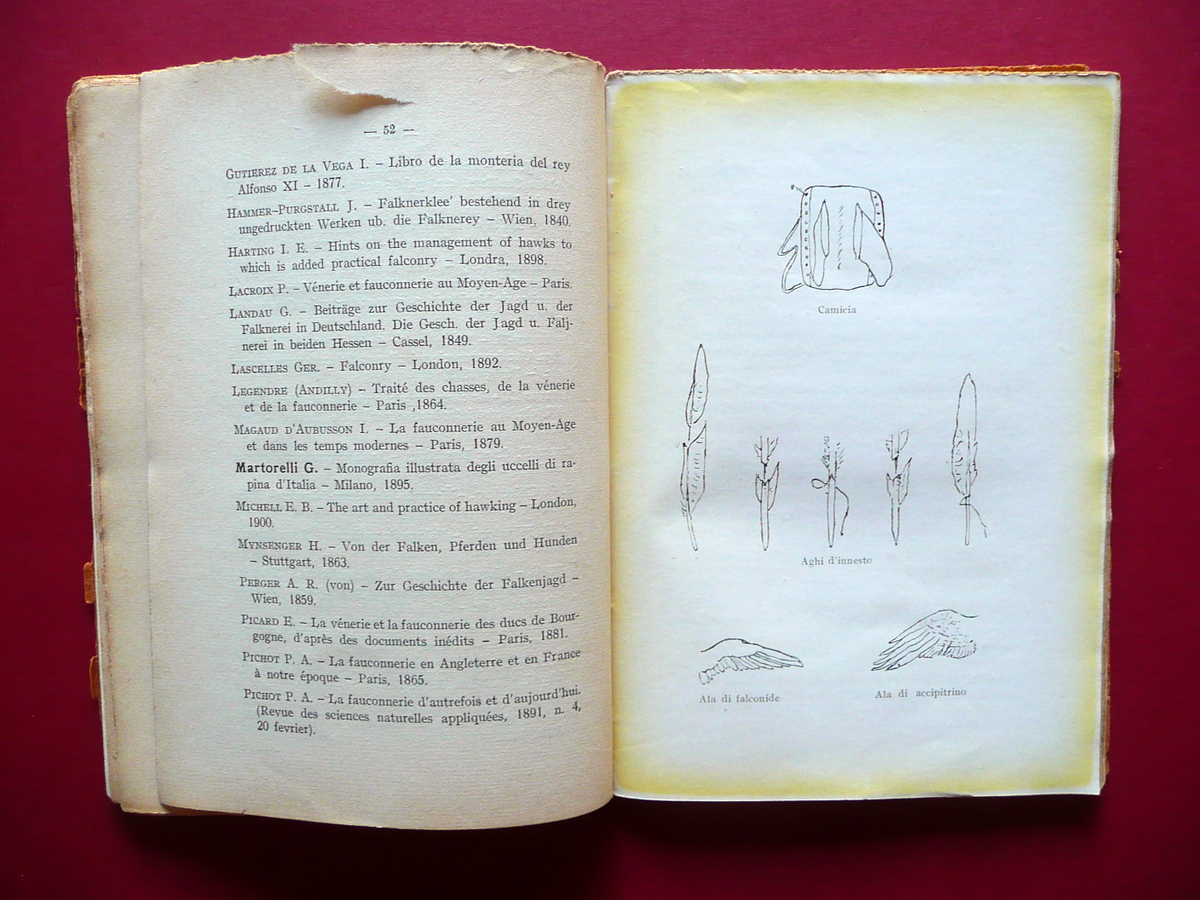 — 52 —
GUTIEREZ DE LA VEGA I. – Libro de la monteria del rey
Alfonso XI – 1877.
HAMMER-PURGSTALL J. – Falknerklee' bestehend in drey
ungedruckten Werken ub. die Falknerey – Wien, 1840.
HARTING I. E. – Hints on the management of hawks to
which is added practical falconry – Londra, 1898.
LACROIX P. – Vénerie et fauconnerie au Moyen-Age – Paris.
LANDAU G. – Beiträge zur Geschichte der Jagd u. der
Falknerei in Deutschland. Die Gesch. der Jagd u. Falj-
nerei in beiden Hessen – Cassel, 1849.
LASCELLES GER. – Falconry – London, 1892.
LEGENDRE (ANDILLY) – Traité des chasses, de la vénerie
et de la fauconnerie – Paris ,1864.
MAGAUD D'AUBUSSON I. – La fauconnerie au Moyen-Age
et dans les temps modernes – Paris, 1879.
Martorelli G. – Monografia illustrata degli uccelli di ra-
pina d'Italia – Milano, 1895.
MICHELL E. B. – The art and practice of hawking – London,
1900.
MYNSENGER H. – Von der Falken, Pferden und Hunden
– Stuttgart, 1863.
PERGER A. R. (von) – Zur Geschichte der Falkenjagd –
Wien, 1859.
PICARD E. – La vénerie et la fauconnerie des ducs de Bour-
gogne, d'après des documents inédits – Paris, 1881.
PICHOT P. A. – La fauconnerie en Angleterre et en France
à notre époque – Paris, 1865.
PICHOT P. A. – La fauconnerie d'autrefois et d'aujourd'hui.
(Revue des sciences naturelles appliquées, 1891, n. 4,
20 fevrier).
Camicia
Aghi d'innesto
Ala di falconide
Ala di accipitrino